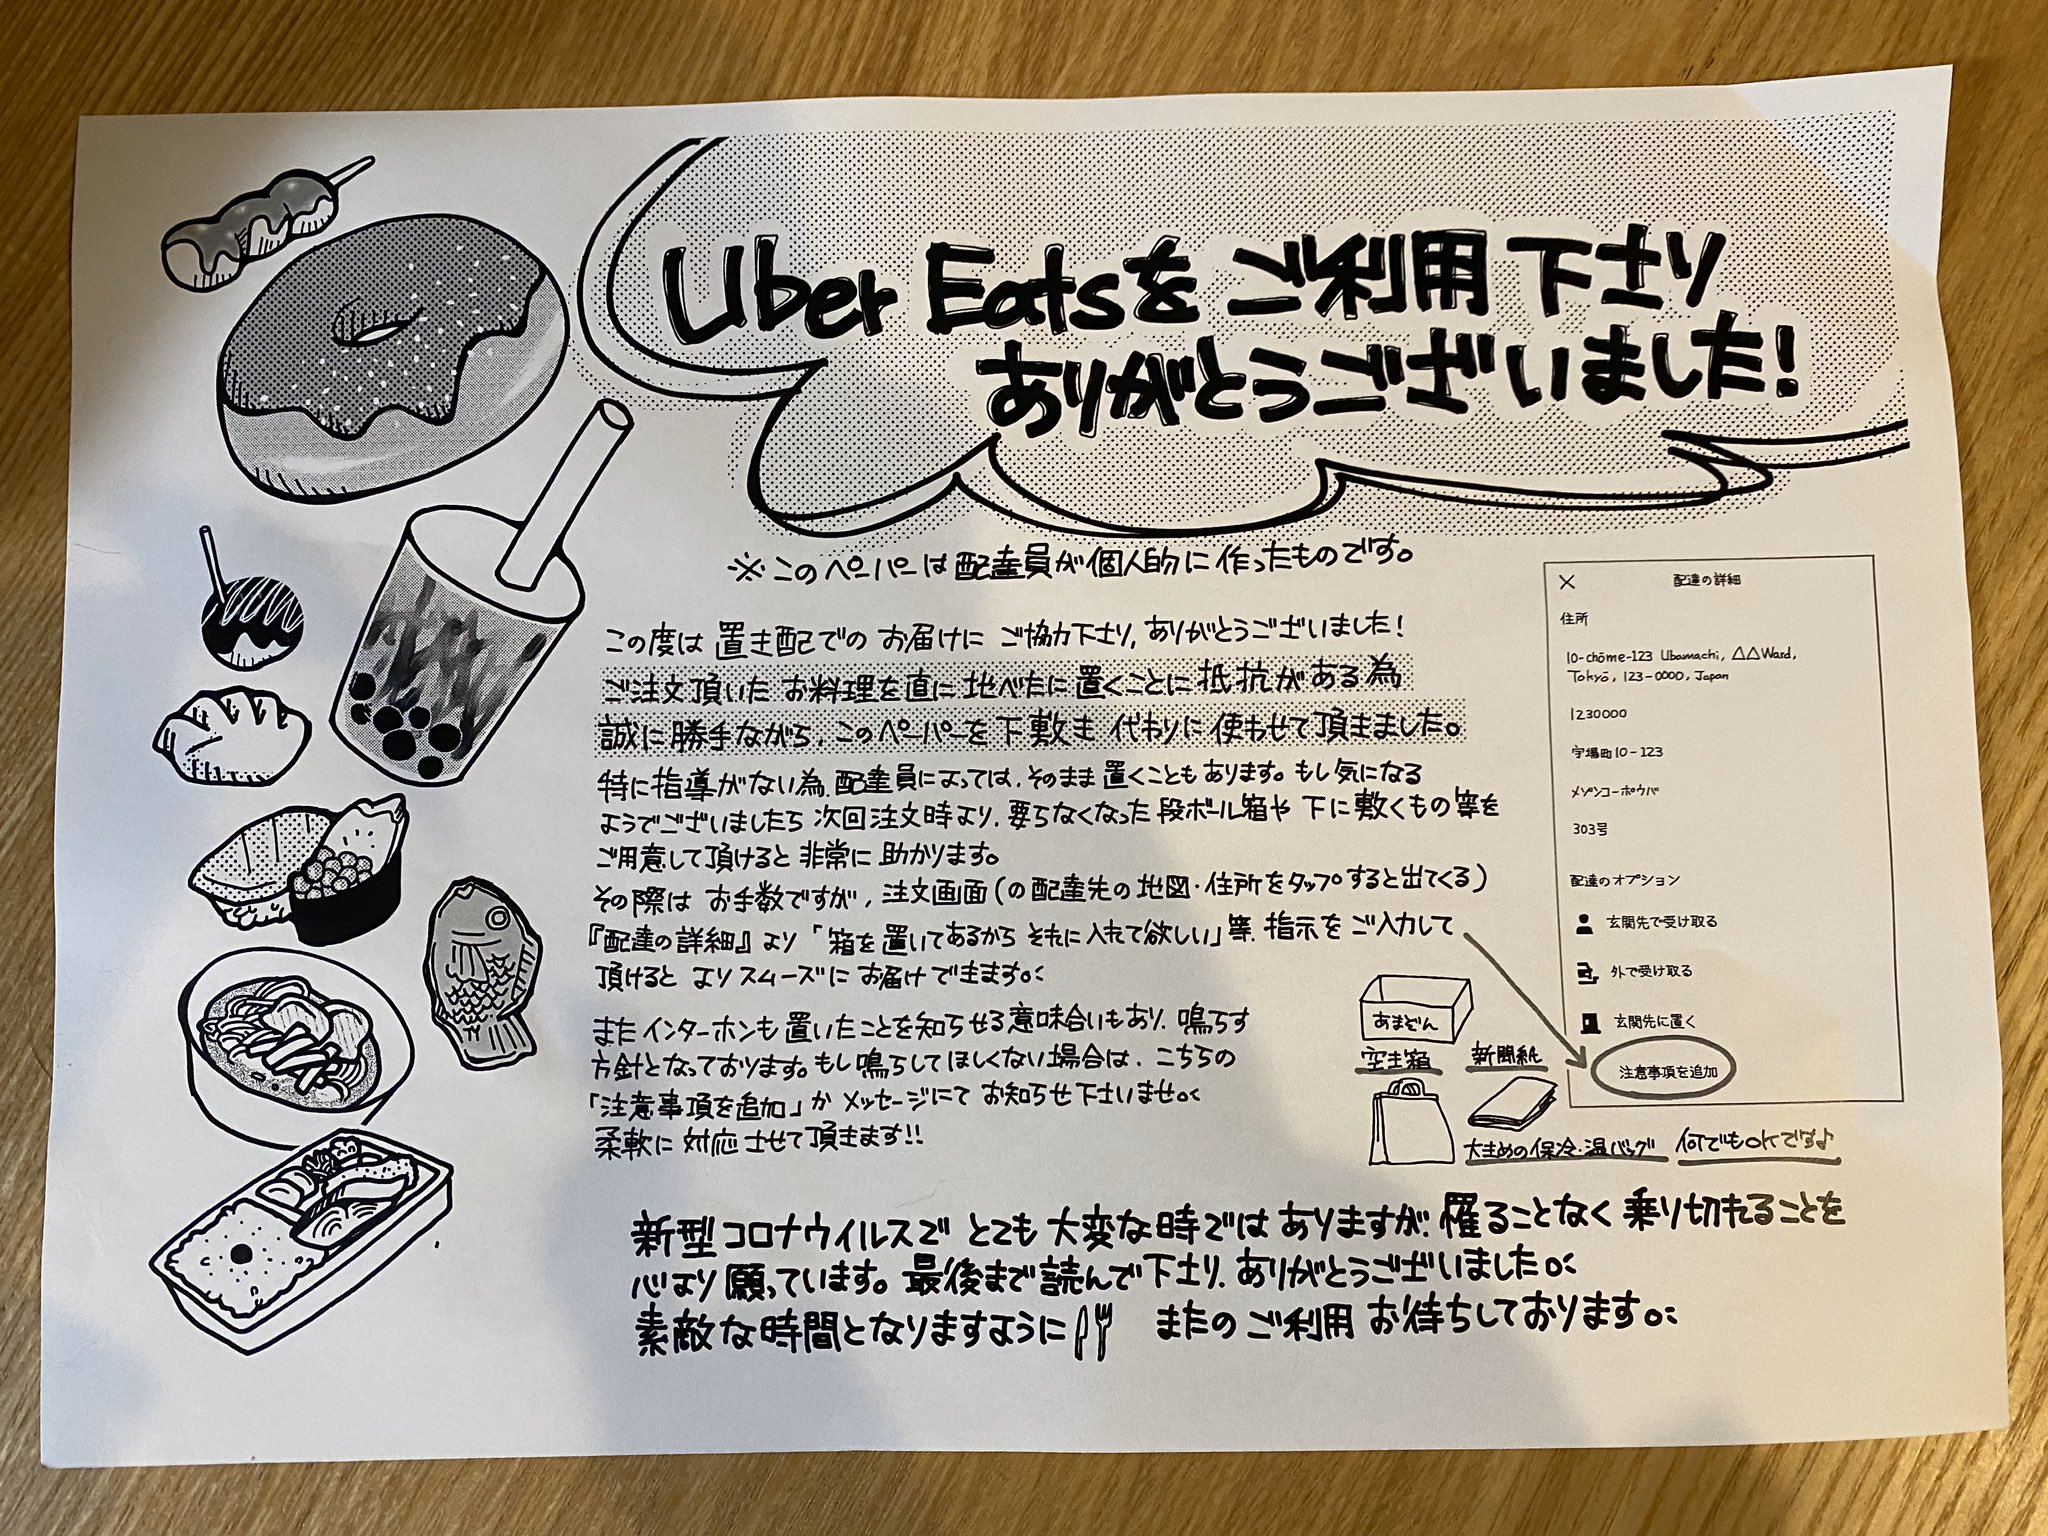 Uber Eatsをご利用下さり
ありがとうございました!
※このペーパーは配達員が個人的に作ったものです。
この度は置き配でのお届けにご協力下さり、ありがとうございました!
ご注文頂いたお料理を直に地べたに置くことに抵抗がある為
誠に勝手ながら、このペーパーを下敷き代わりに使わせて頂きました。
特に指導がない為、配達員によっては、そのまま置くこともあります。もし気になる
ようでございましたら次回注文時より、要らなくなった段ボール箱や下に敷くもの等を
ご用意して頂けると非常に助かります。
その際はお手数ですが、注文画面(の配達先の地図・住所をタップすると出てくる)
『配達の詳細』より「箱を置いてあるからそれに入れて欲しい」等、指示をご入力して
頂けるとよりスムーズにお届けできます。
またインターホンも置いたことを知らせる意味合いもあり、鳴らす
方針となっております。もし鳴らしてほしくない場合は、こちらの
「注意事項を追加」かメッセージにてお知らせ下さいませ。
柔軟に対応させて頂きます!!
×
配達の詳細
住所
10-chōme-123 Ubamachi, △△Ward,
Tokyō, 123-0000, Japan
1230000
宇場町10-123
メゾンコーポウバ
303号
配達のオプション
玄関先で受け取る
外で受け取る
玄関先に置く
注意事項を追加
あまどん
空き箱
新聞紙
大きめの保冷・温バッグ
何でもOKです♪
新型コロナウイルスでとても大変な時ではありますが、罹ることなく乗り切れることを
心より願っています。最後まで読んで下さり、ありがとうございました。
素敵な時間となりますように
またのご利用お待ちしております。